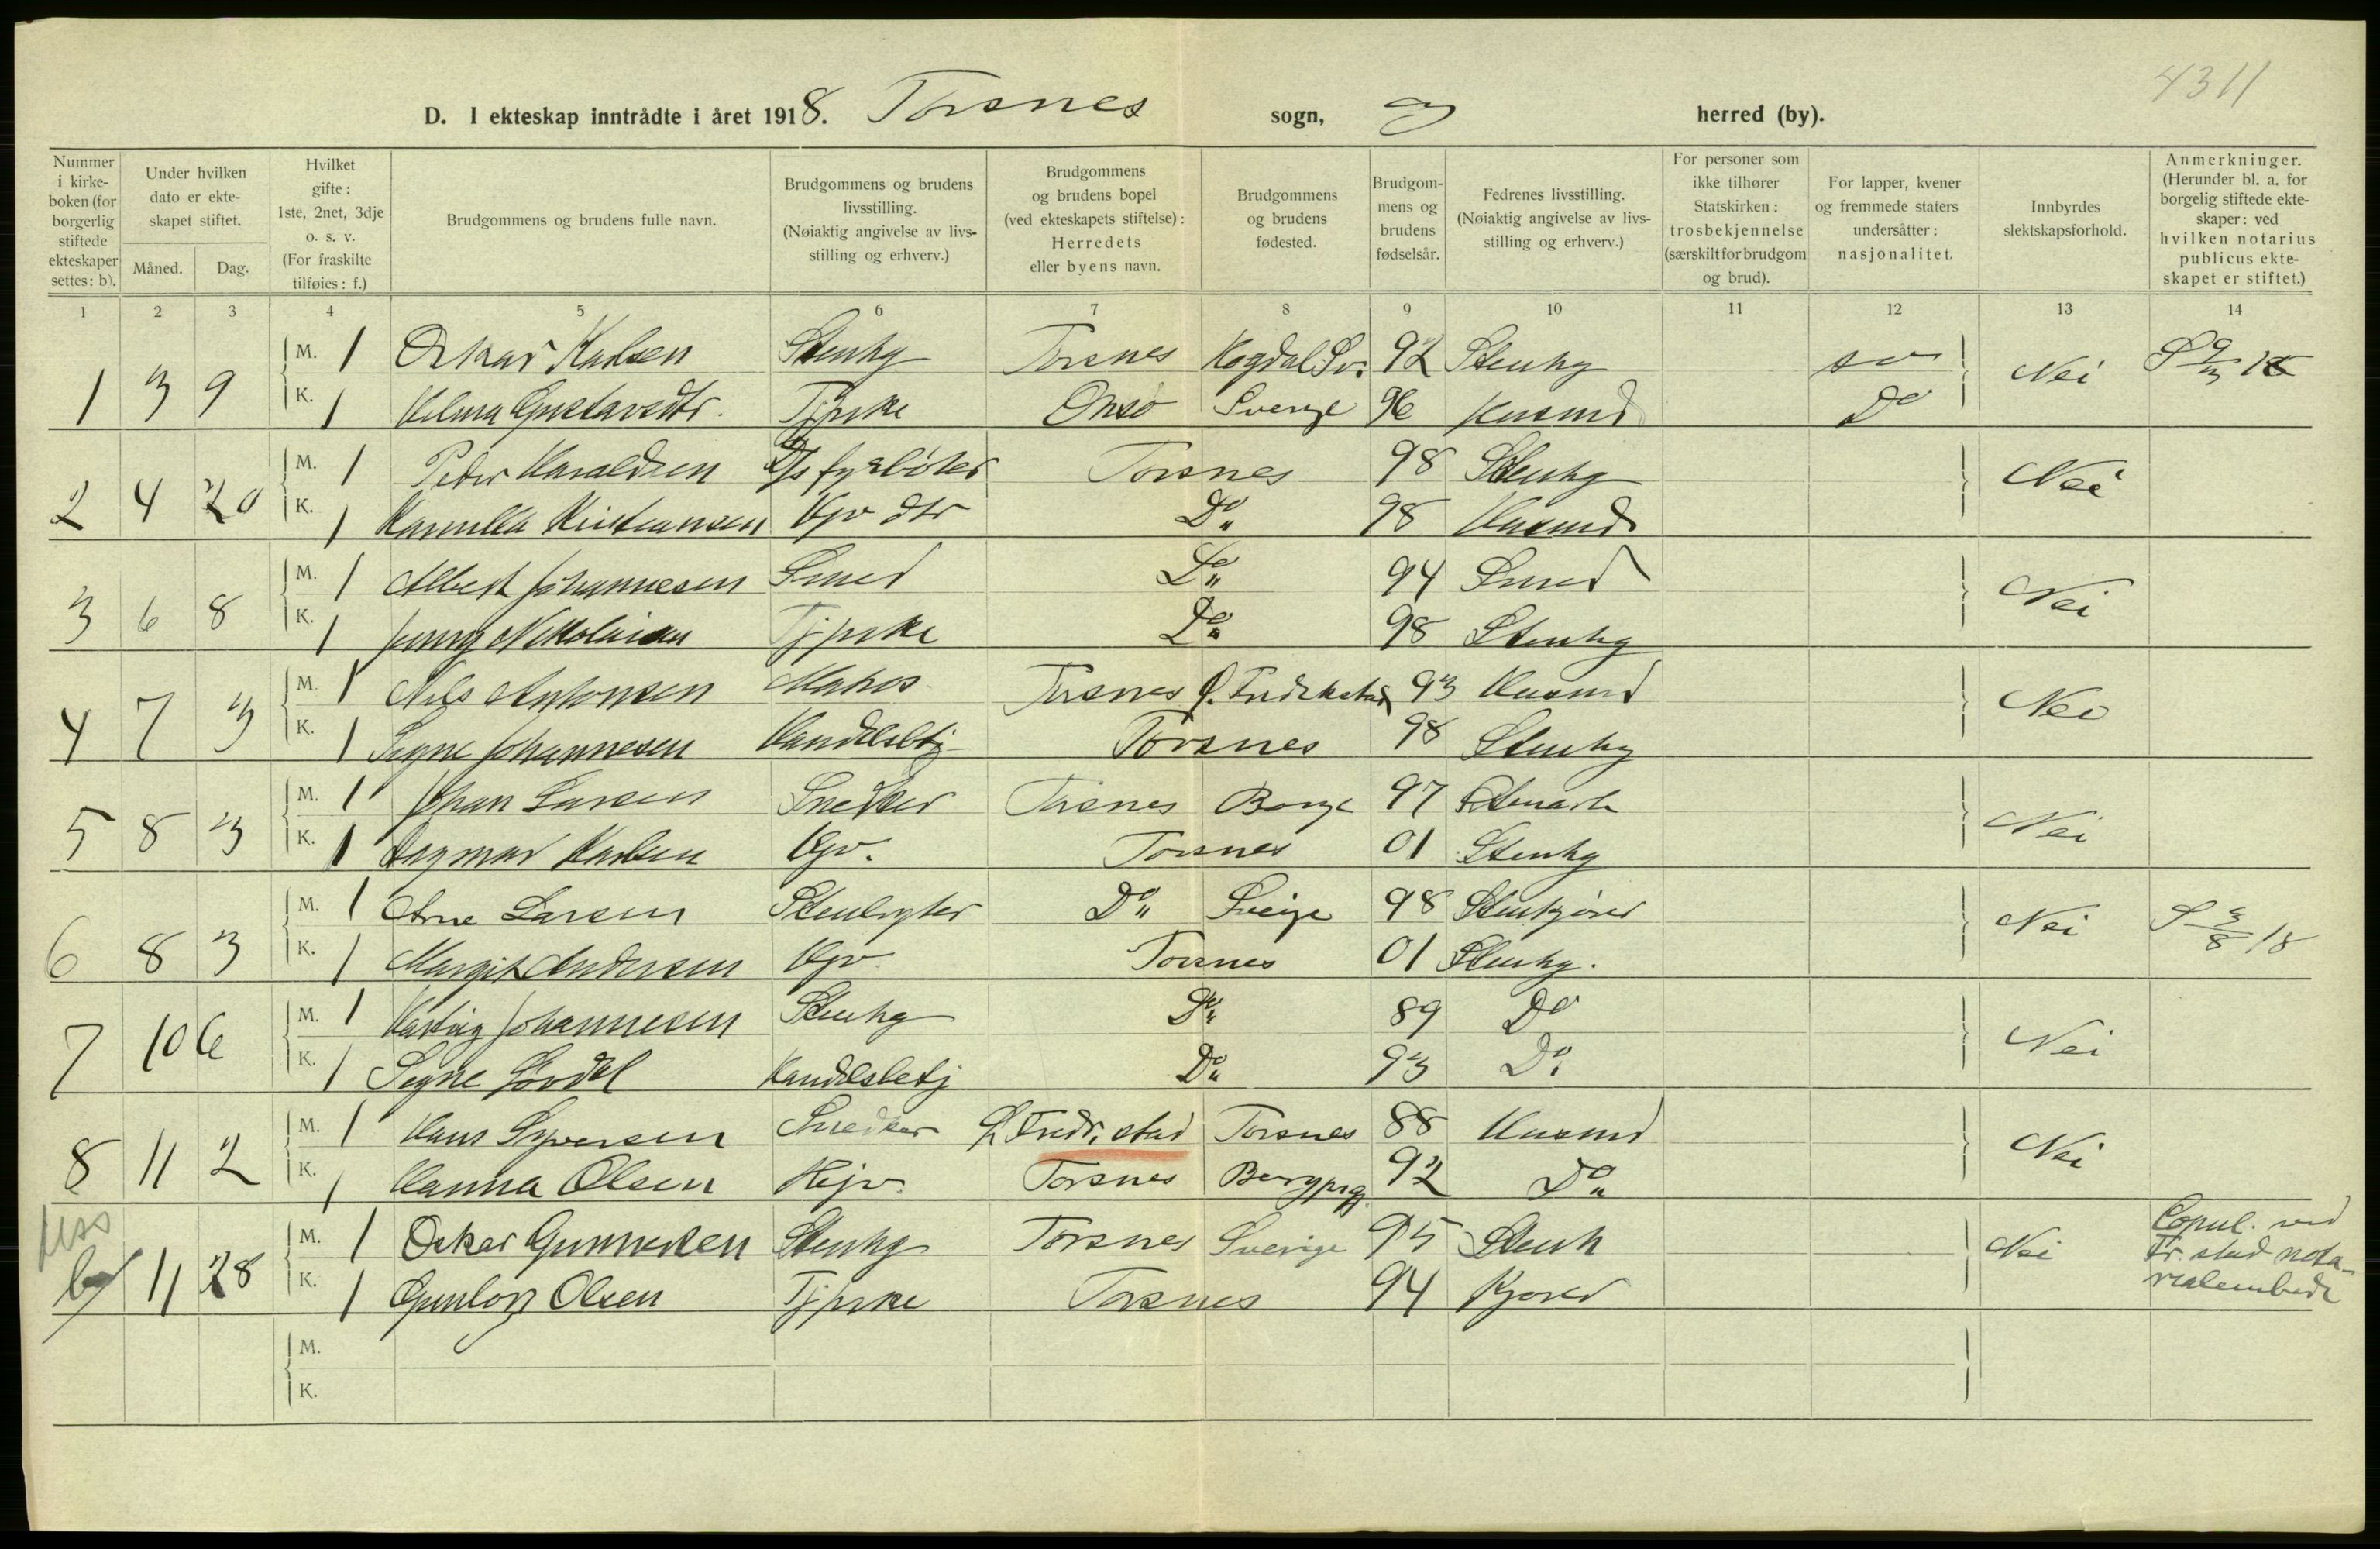 4311
D. I ekteskap inntrådte i året 1918. Torsnes sogn, og herred (by).
Nummer i kirkeboken (for borgerlig stiftede ekteskaper settes: b). Under hvilken dato er ekteskapet stiftet. Måned. Dag. Hvilket gifte: 1ste, 2net, 3dje o. s. v. (For fraskilte tilføies: f.) Brudgommens og brudens fulle navn. Brudgommens og brudens livsstilling. (Nøiaktig angivelse av livsstilling og erhverv.) Brudgommens og brudens bopel (ved ekteskapets stiftelse): Herredets eller byens navn. Brudgommens og brudens fødested. Brudgommens og brudens fødselsår. Fedrenes livsstilling. (Nøiaktig angivelse av livsstilling og erhverv.) For personer som ikke tilhører Statskirken: trosbekjennelse (særskilt for brudgom og brud). For lapper, kvener og fremmede staters undersåtter: nasjonalitet. Innbyrdes slektskapsforhold. Anmerkninger. (Herunder bl. a. for borgelig stiftede ekteskaper: ved hvilken notarius publicus ekteskapet er stiftet.)
1 2 3 4 5 6 7 8 9 10 11 12 13 14
1 3 9 M. 1 Oskar Karlsen Stenhg Torsnes Hogdal Sv. 92 Stenhg sv Nei S 9/3 18
K. 1 Helma Gustavsdtr. Tjpike Onsø Sverige 96 Husmd Do
2 4 20 M. 1 Peder Haraldsen D/s fyrbøter Torsnes 98 Stenhg Nei
K. 1 Kamilla Kristiansen Gjv dtr Do 98 Husmd
3 6 8 M. 1 Albert Johannesen Smed Do 94 Smed Nei
K. 1 Jenny Nikolaisen Tjpike Do 98 Stenhg
4 7 3 M. 1 Nils Antonsen Matros Torsnes Ø. Fredrikstad 93 Husmd Nei
K. 1 Signe Johannesen Handelsbtj Torsnes 98 Stenhg
5 8 3 M. 1 Johan Larsen Snedker Torsnes Borge 97 Stenarb Nei
K. 1 Dagmar Karlsen Gjv. Torsnes 01 Stenhg
6 8 3 M. 1 Arne Larsen Do Sverige 98 Stenkjører Nei S 3/8 18
K. 1 Margit Andersen Gjv Torsnes 01 Stenhg.
7 10 6 M. 1 Hartvig Johannesen Stenhg Do 89 Do Nei
K. 1 Signe Sørdal Handelsbetj Do 93 Do
8 11 2 M. 1 Hans Syversen Snedker Fredr.stad Torsnes 88 Husmd Nei
K. 1 Hanna Olsen Hjv. Torsnes Borge 92 Do
b 11 28 M. 1 Oskar Gunnersen Stenhg Torsnes Sverige 95 Stenh Nei Copul. ved Fr.stad notarialembede
K. 1 Gunlog Olsen Tjpike Torsnes 94 Kjører
M.
K.